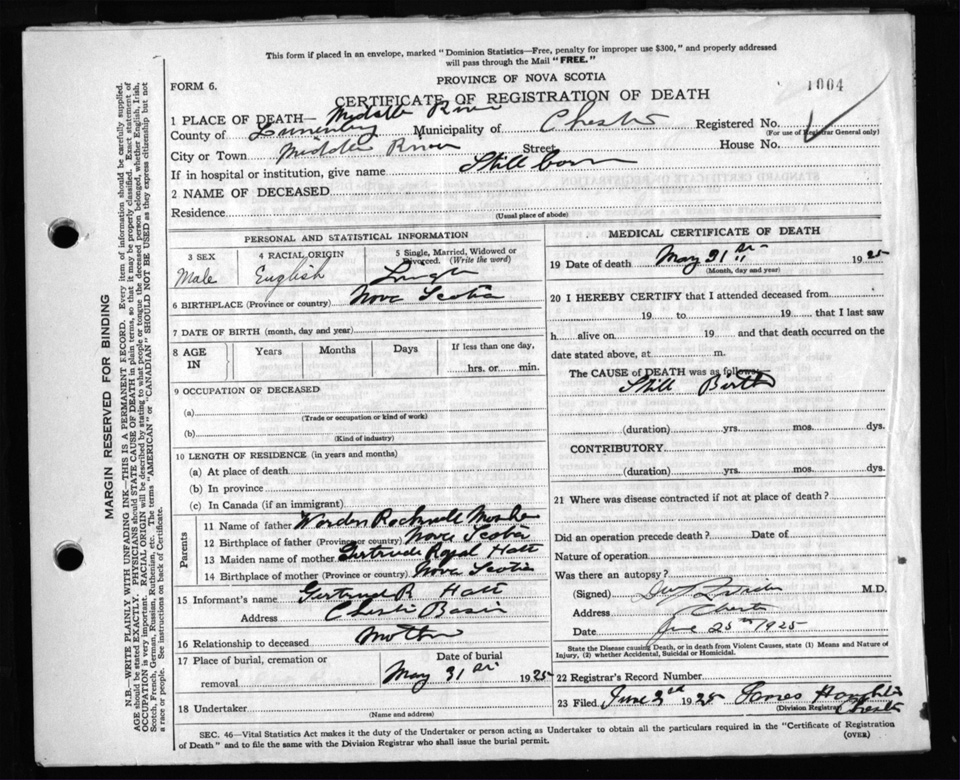 This form if placed in an envelope, marked "Dominion Statistics—Free, penalty for improper use $300," and properly addressed
will pass through the Mail "FREE."
PROVINCE OF NOVA SCOTIA
FORM 6.
1004
CERTIFICATE OF REGISTRATION OF DEATH
1 PLACE OF DEATH— Middle River
County of Lunenburg Municipality of Chester Registered No.
(For use of Registrar General only)
City or Town Middle River Street House No.
If in hospital or institution, give name Still born
2 NAME OF DECEASED
Residence
(Usual place of abode)
PERSONAL AND STATISTICAL INFORMATION
3 SEX 4 RACIAL ORIGIN 5 Single, Married, Widowed or Divorced. (Write the word)
Male English Single
6 BIRTHPLACE (Province or country) Nova Scotia
7 DATE OF BIRTH (month, day and year)
8 AGE IN Years Months Days If less than one day,
hrs. or min.
9 OCCUPATION OF DECEASED
(a)
(Trade or occupation or kind of work)
(b)
(Kind of industry)
10 LENGTH OF RESIDENCE (in years and months)
(a) At place of death
(b) In province
(c) In Canada (if an immigrant)
Parents
11 Name of father Worden Rockwell Mosher
12 Birthplace of father (Province or country) Nova Scotia
13 Maiden name of mother Gertrude Royal Hatt
14 Birthplace of mother (Province or country) Nova Scotia
15 Informant's name Gertrude R Hatt
Address Chester Basin
16 Relationship to deceased Mother
17 Place of burial, cremation or removal Date of burial
May 31 st 1925
18 Undertaker
(Name and address)
MEDICAL CERTIFICATE OF DEATH
19 Date of death May 31 st 1925
(Month, day and year)
20 I HEREBY CERTIFY that I attended deceased from
19 to 19 that I last saw
h alive on 19 and that death occurred on the
date stated above, at m.
The CAUSE of DEATH was as follows:
Still Birth
(duration) yrs. mos. dys.
CONTRIBUTORY
(duration) yrs. mos. dys.
21 Where was disease contracted if not at place of death?
Did an operation precede death? Date of
Nature of operation
Was there an autopsy?
(Signed) M.D.
Address Chester
Date 25th 1925
State the Disease causing Death, or in death from Violent Causes, state (1) Means and Nature of
Injury, (2) whether Accidental, Suicidal or Homicidal.
22 Registrar's Record Number
23 Filed June 1925
(Division Registrar) Chester
SEC. 46—Vital Statistics Act makes it the duty of the Undertaker or person acting as Undertaker to obtain all the particulars required in the "Certificate of Registration
of Death" and to file the same with the Division Registrar who shall issue the burial permit.
(OVER)
MARGIN RESERVED FOR BINDING
N.B.—WRITE PLAINLY WITH UNFADING INK—THIS IS A PERMANENT RECORD. Every item of information should be carefully supplied.
AGE should be stated EXACTLY. PHYSICIANS should STATE CAUSE OF DEATH in plain terms, so that it may be properly classified. Exact statement of
OCCUPATION is very important. RACIAL ORIGIN will be described by stating to what people or tongue the deceased person belonged, whether English, Irish,
Scotch, French, German, Russian, Ruthenian, etc. The terms "AMERICAN" or "CANADIAN" SHOULD NOT BE USED as they express citizenship but not
a race or people. See instructions on back of Certificate.